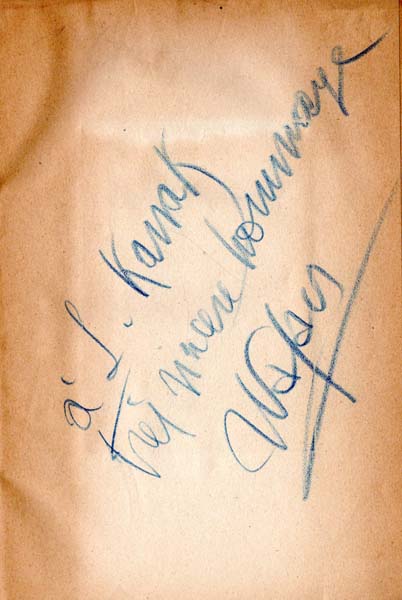 à L. Kanak
très sincère hommage